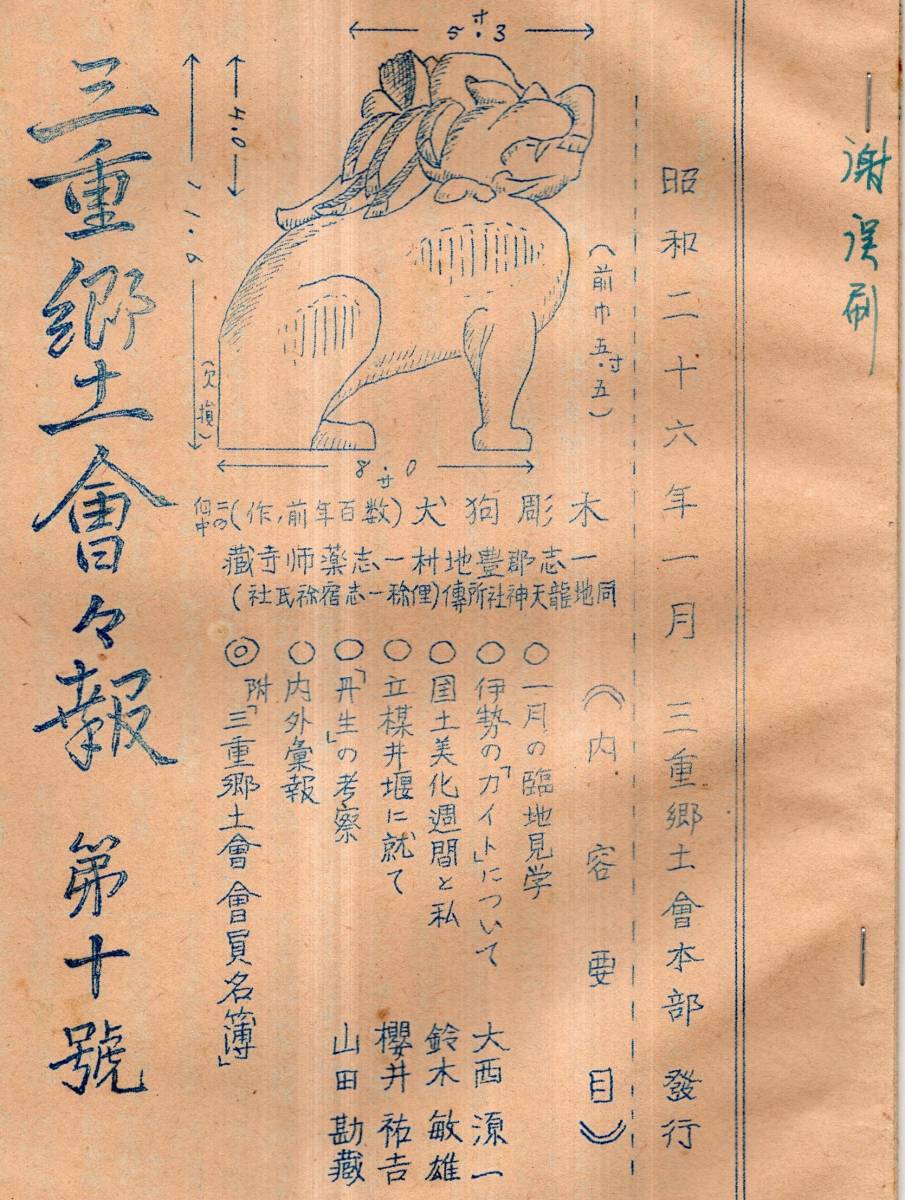 謝誤刷
昭和二十六年一月 三重郷土會本部 發行
5寸3
5.0
(前巾五寸五)
(欠損)
8寸0
木彫狗犬(数百年前ノ作)二の内中
一志郡豊地村一志薬師寺蔵
同地龍天神社所傳(俚称一志宿祢氏社)
《内容要目》
○一月の臨地見学
○伊勢の「カイト」について 大西源一
○国土美化週間と私 鈴木敏雄
○立楳井堰に就て 櫻井祐吉
○「丹生」の考察 山田勘蔵
○内外彙報
◎附「三重郷土會會員名簿」
三重郷土會々報 第十號